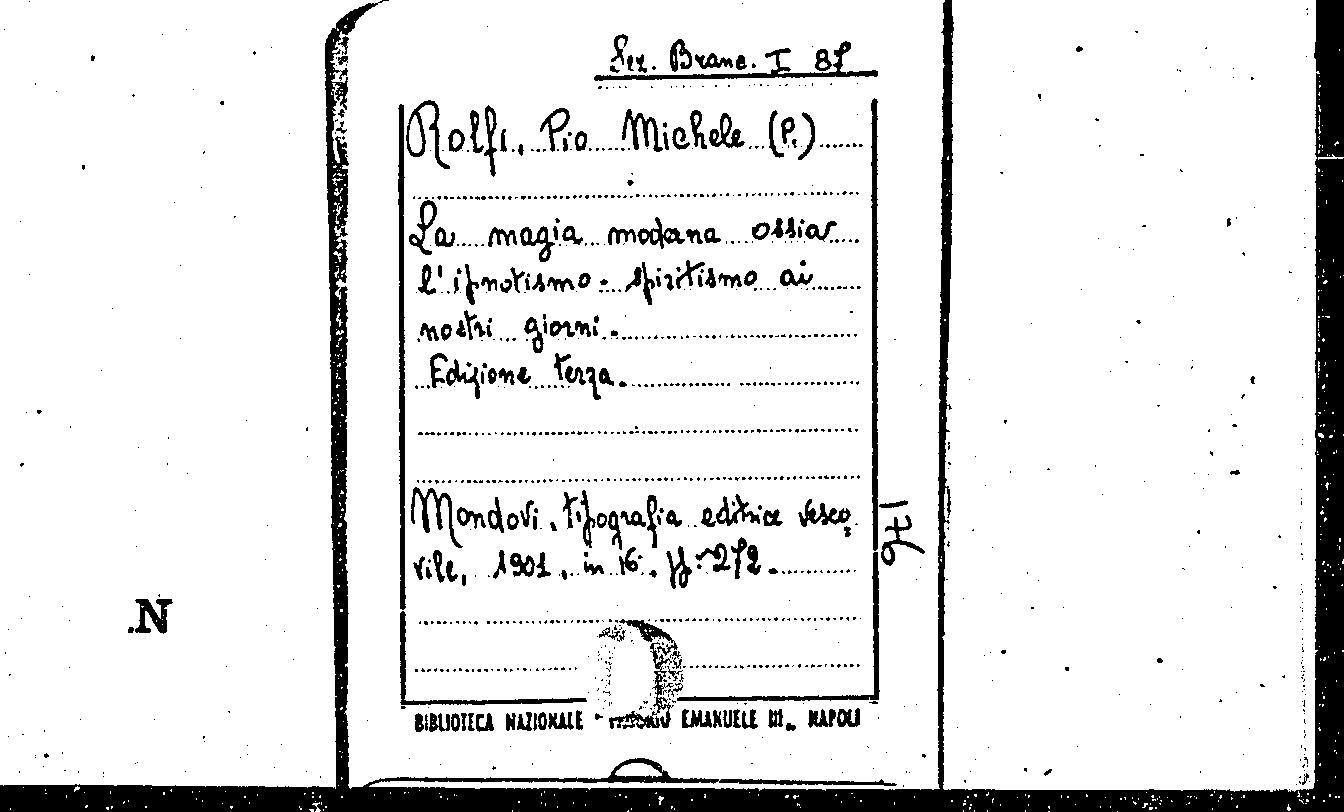 Sez. Branc. I 87
Rolfi, Pio Michele (P.)
La magia moderna ossia
l'ipnotismo - spiritismo ai
nostri giorni.
Edizione terza.
Mondovi, tipografia editrice vesco=
vile, 1901, in 16°. pp: 272.
176
.N
BIBLIOTECA NAZIONALE VITTORIO EMANUELE III. NAPOLI